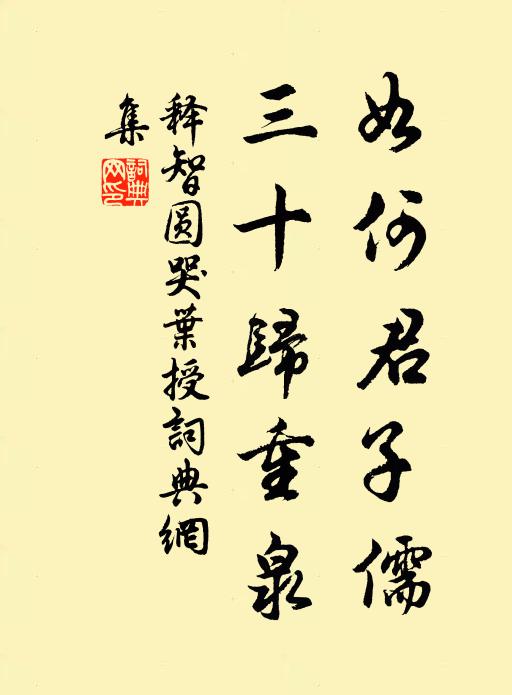 如何君子儒
三十歸重泉
释智圆哭葉授詞典網
集
詞典网印